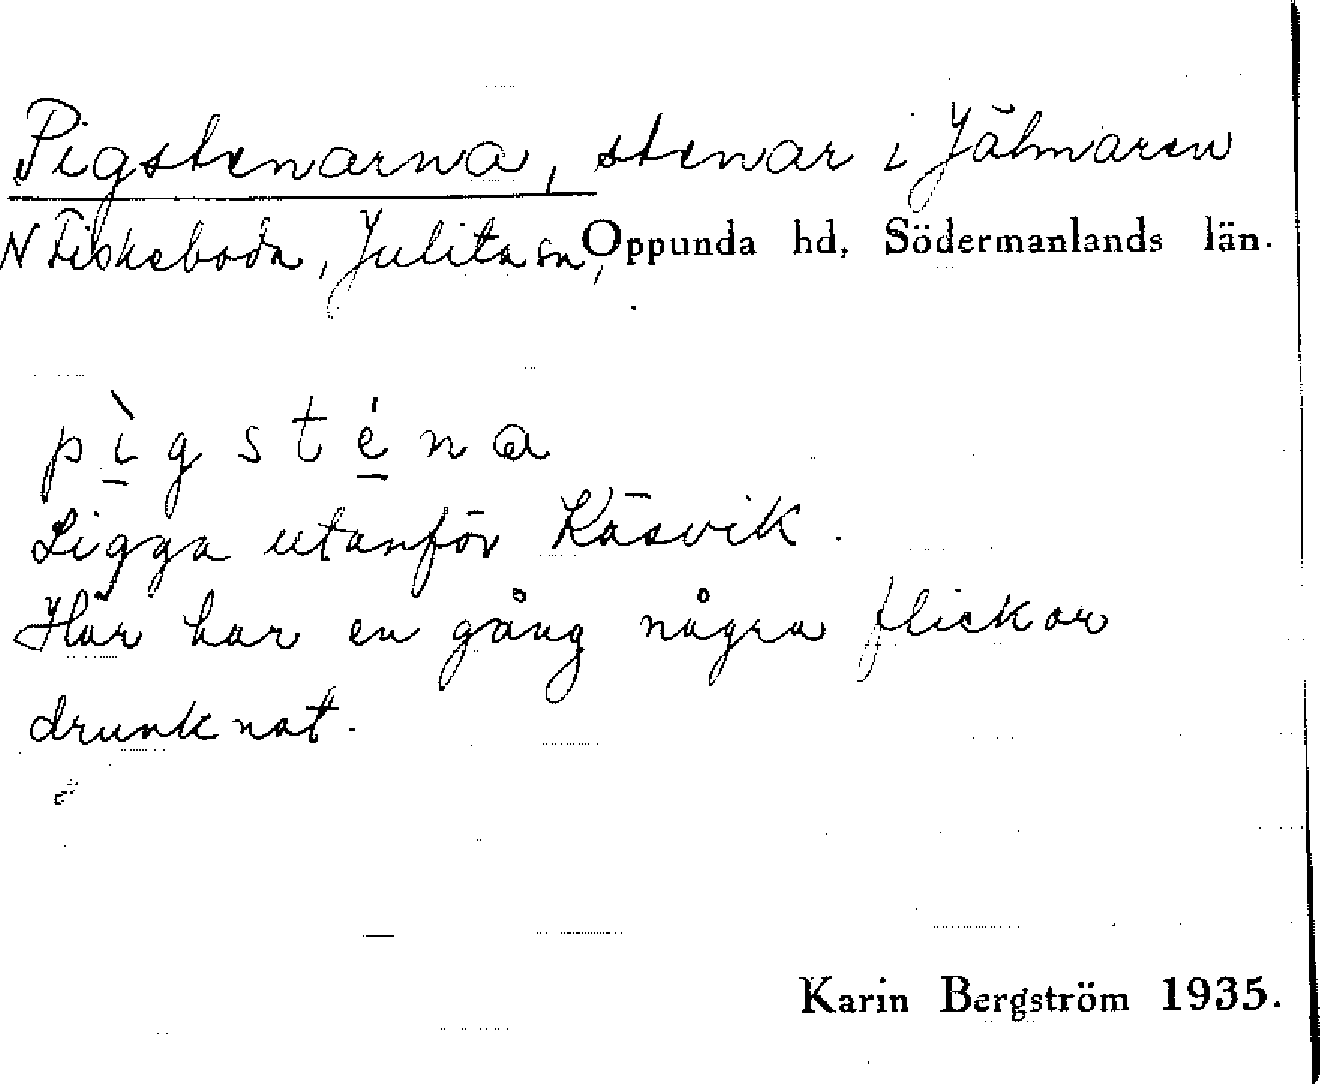 Pigstenarna, stenar i Jälmaren
N Fiskeboda, Julita sn, Oppunda hd, Södermanlands län.
pìgsténa
Ligga utanför Käsvik.
Här har en gång några flickor
drunknat.
Karin Bergström 1935.